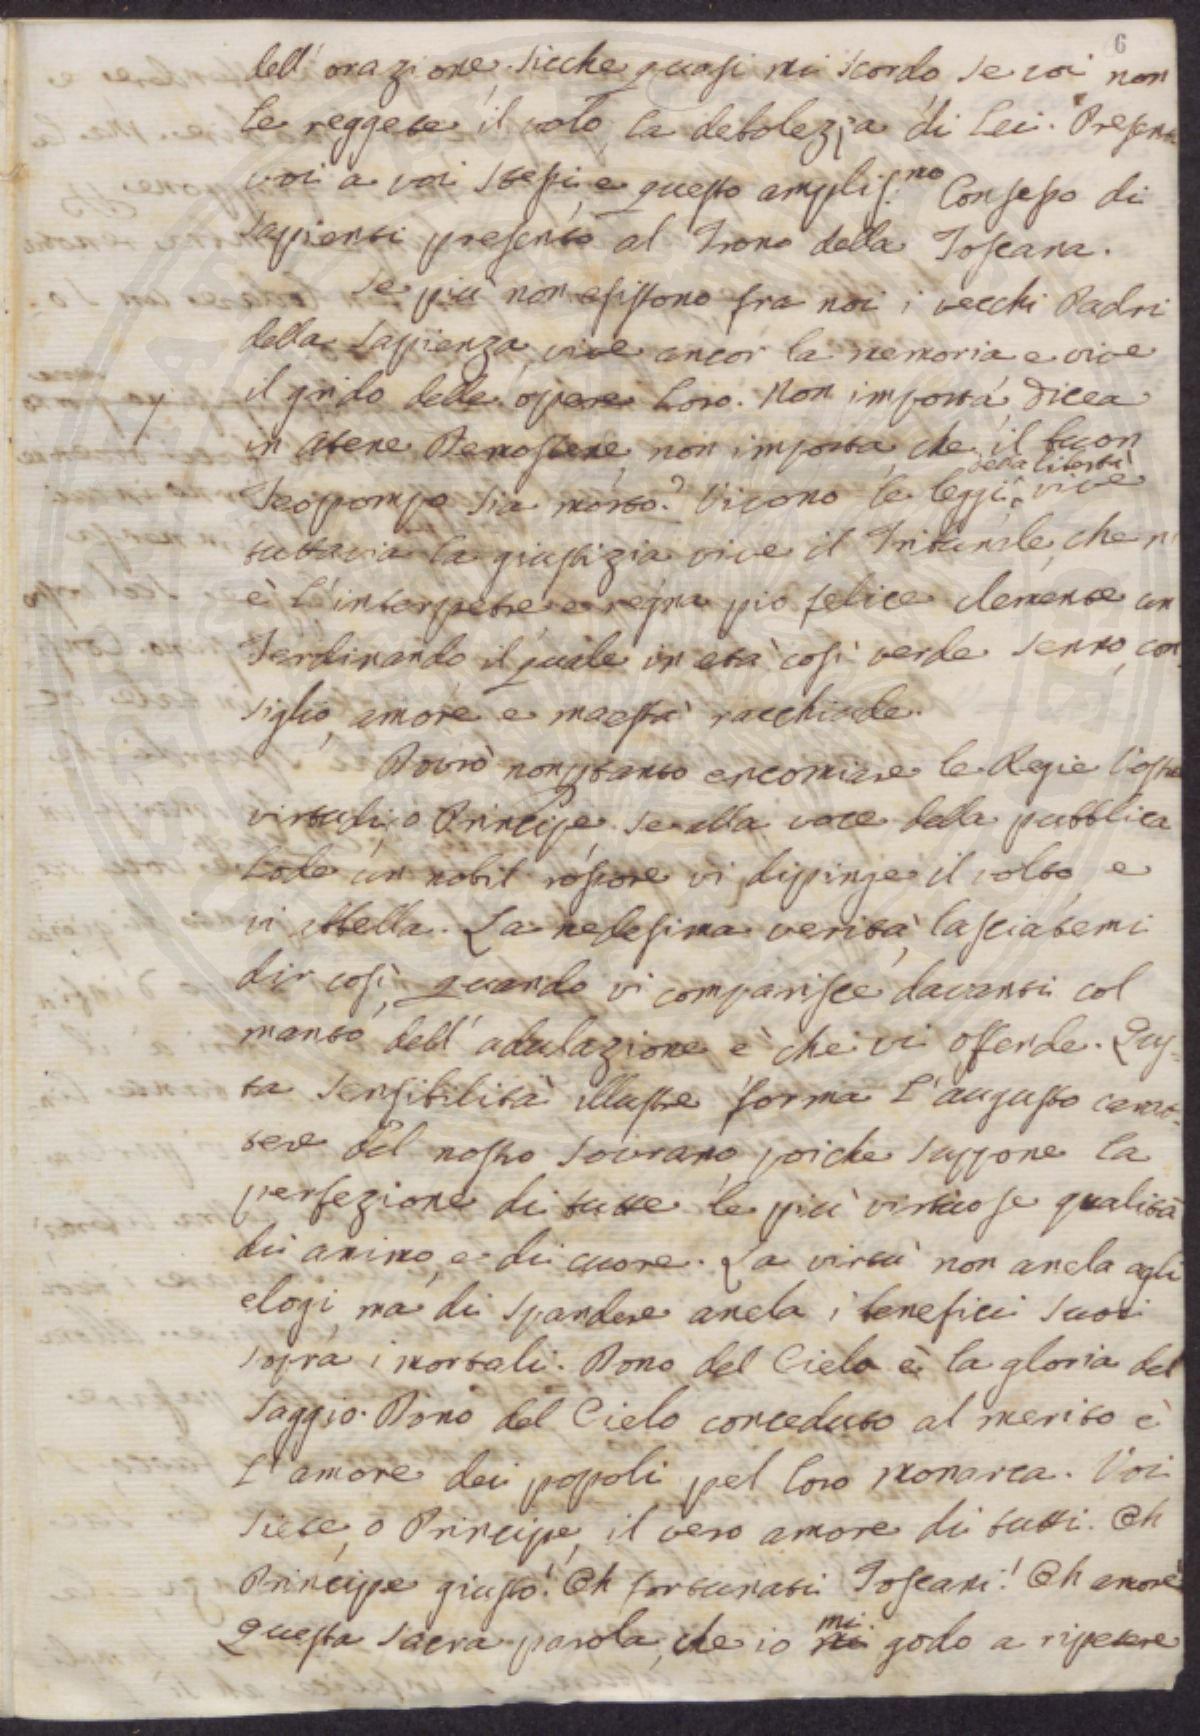 6
dell' orazione. Sicche quasi mi scordo, se voi non
le reggete il volo, la debolezza di Lei. Presento
voi a voi stessi, e questo amplis.mo Consesso di
Sapienti presento al Trono della Toscana.
Se più non esistono fra noi i vecchi Padri
della Sapienza, vive ancor la memoria e vive
il grido delle opere loro. Non importa, dicea
in Atene Demostene, non importa, che il buon
della libertà
Teopompo sia morto? Vivono le leggi, vive
tuttavia la giustizia vive il Tribunale che n'
è l'interpetre, e regna pio felice clemente un
Ferdinando, il quale in età così verde senno, con-
siglio, amore e maestà racchiude.
Dovrò nonostanto encomiare le Regie Vostre
virtudi, o Principe se alla voce della pubblica
Lode un nobil rossore vi dipinge il volto, e
vi abbella. La medesima verità, lasciatemi
dir così, quando vi comparisce davanti col
manto dell' adulazione è che vi offende. Ques-
ta sensibilità illustre forma l'augusto carat-
tere del nostro Sovrano, poiche suppone la
perfezione di tutte le più virtuose qualità
di animo, e di cuore. La virtù non anela agli
elogi, ma di spandere anela i beneficii suoi
sopra i mortali. Dono del Cielo è la gloria del
Saggio. Dono del Cielo conceduto al merito è
L'amore dei popoli pel loro Monarca. Voi
siete, o Principe, il vero amore di tutti. Oh
Principe giusto! Oh fortunati Toscani! Oh amore
mi
Questa sacra parola, che io godo a ripetere